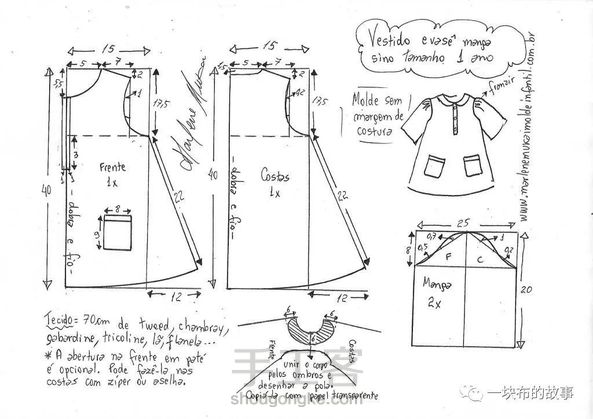 Vestido evasê manga
sino tamanho 1 ano
Molde sem
margem de
costura
franzir
www.marlenemukaimoldeinfantil.com.br
15
5
7
2
3,5
1
17,5
3
40
Frente
1x
8
9
22
- dobra e fio -
12
Marlene Mukai
15
5
7
2
17,5
40
Costas
1x
22
- dobra e fio -
12
25
0,7
1
0,5
0,2
8
F
C
20
Manga
2x
Tecido = 70cm de tweed, chambray,
gabardine, tricoline, lã, flanela...
* A abertura na frente em patê
é opcional. Pode fazê-la nas
costas com ziper ou aselha.
6
6
6
Frente
Costas
unir o corpo
pelos ombros e
desenhar a gola.
Copiá-la com papel transparente
手工客
shougongke.com
一块布的故事